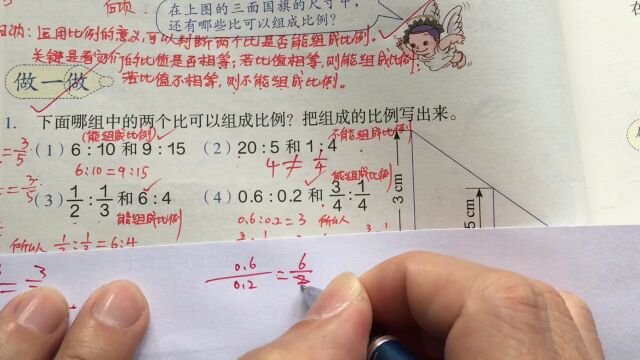 后项.
在上图的三面国旗的尺寸中，
还有哪些比可以组成比例？
归纳：运用比例的意义，可以判断两个比是否能组成比例。
关键是看它们的比值是否相等；若比值相等，则能组成比例；
若比值不相等，则不能组成比例.
做一做
1. 下面哪组中的两个比可以组成比例？把组成的比例写出来。
(能组成比例) 不能组成比例
(1) 6∶10 和 9∶15 (2) 20∶5 和 1∶4
6:10=9:15 4≠1/4
能组成比例
(3) 1/2∶1/3 和 6∶4 (4) 0.6∶0.2 和 3/4∶1/4
能组成比例 0.6:0.2=3
所以 1/2:1/3=6:4
=3/5
=3/5
3 cm
5 cm
0.6/0.2=6/2